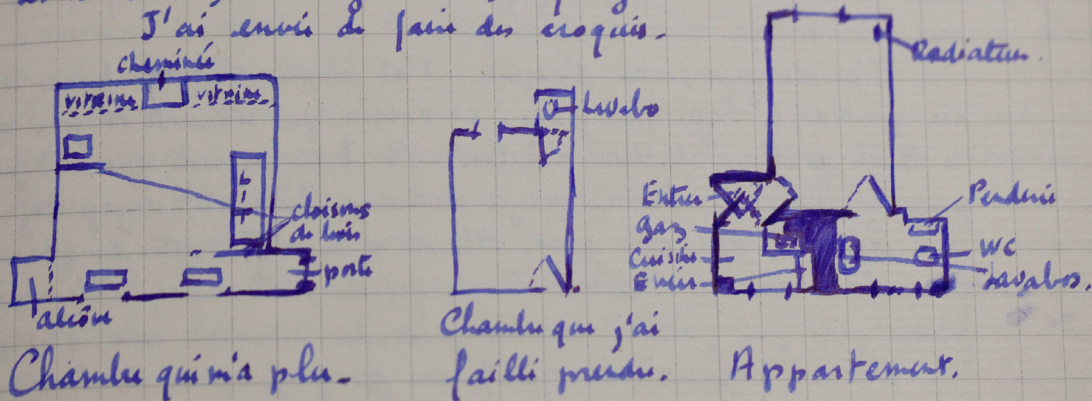 J'ai envie de faire des croquis.
cheminée
vitrine vitrine
cloisons
de bois
porte
alcôve
Chambre qui m'a plu.
Lavabo
Chambre que j'ai
failli prendre.
Radiateur.
Entrée
gaz
Cuisine
Evier
Penderie
WC
Lavabos.
Appartement.